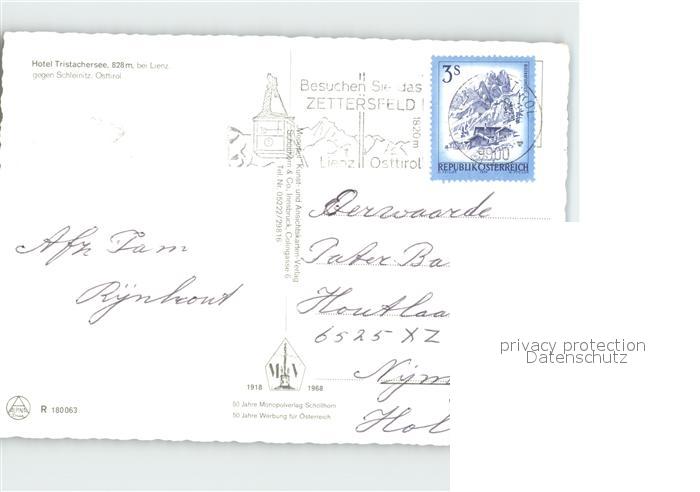 Hotel Tristachersee, 828 m, bei Lienz
gegen Schleinitz. Osttirol
Besuchen Sie das
ZETTERSFELD !
1820 m
Lienz Osttirol
3 S
TIROL
9900
REPUBLIK ÖSTERREICH
Kunst- und Ansichtskarten-Verlag
Schöllhorn & Co. Innsbruck, Colingasse 6
Tel. Nr. 05222/29816
Afz Fam
Rijnhout
Eerwaarde
Pater Ba
Houtlaa
6525 XZ
Nijm
Hol
M V
1918 1968
50 Jahre Monopolverlag Schöllhorn
50 Jahre Werbung für Österreich
R 180063
privacy protection
Datenschutz